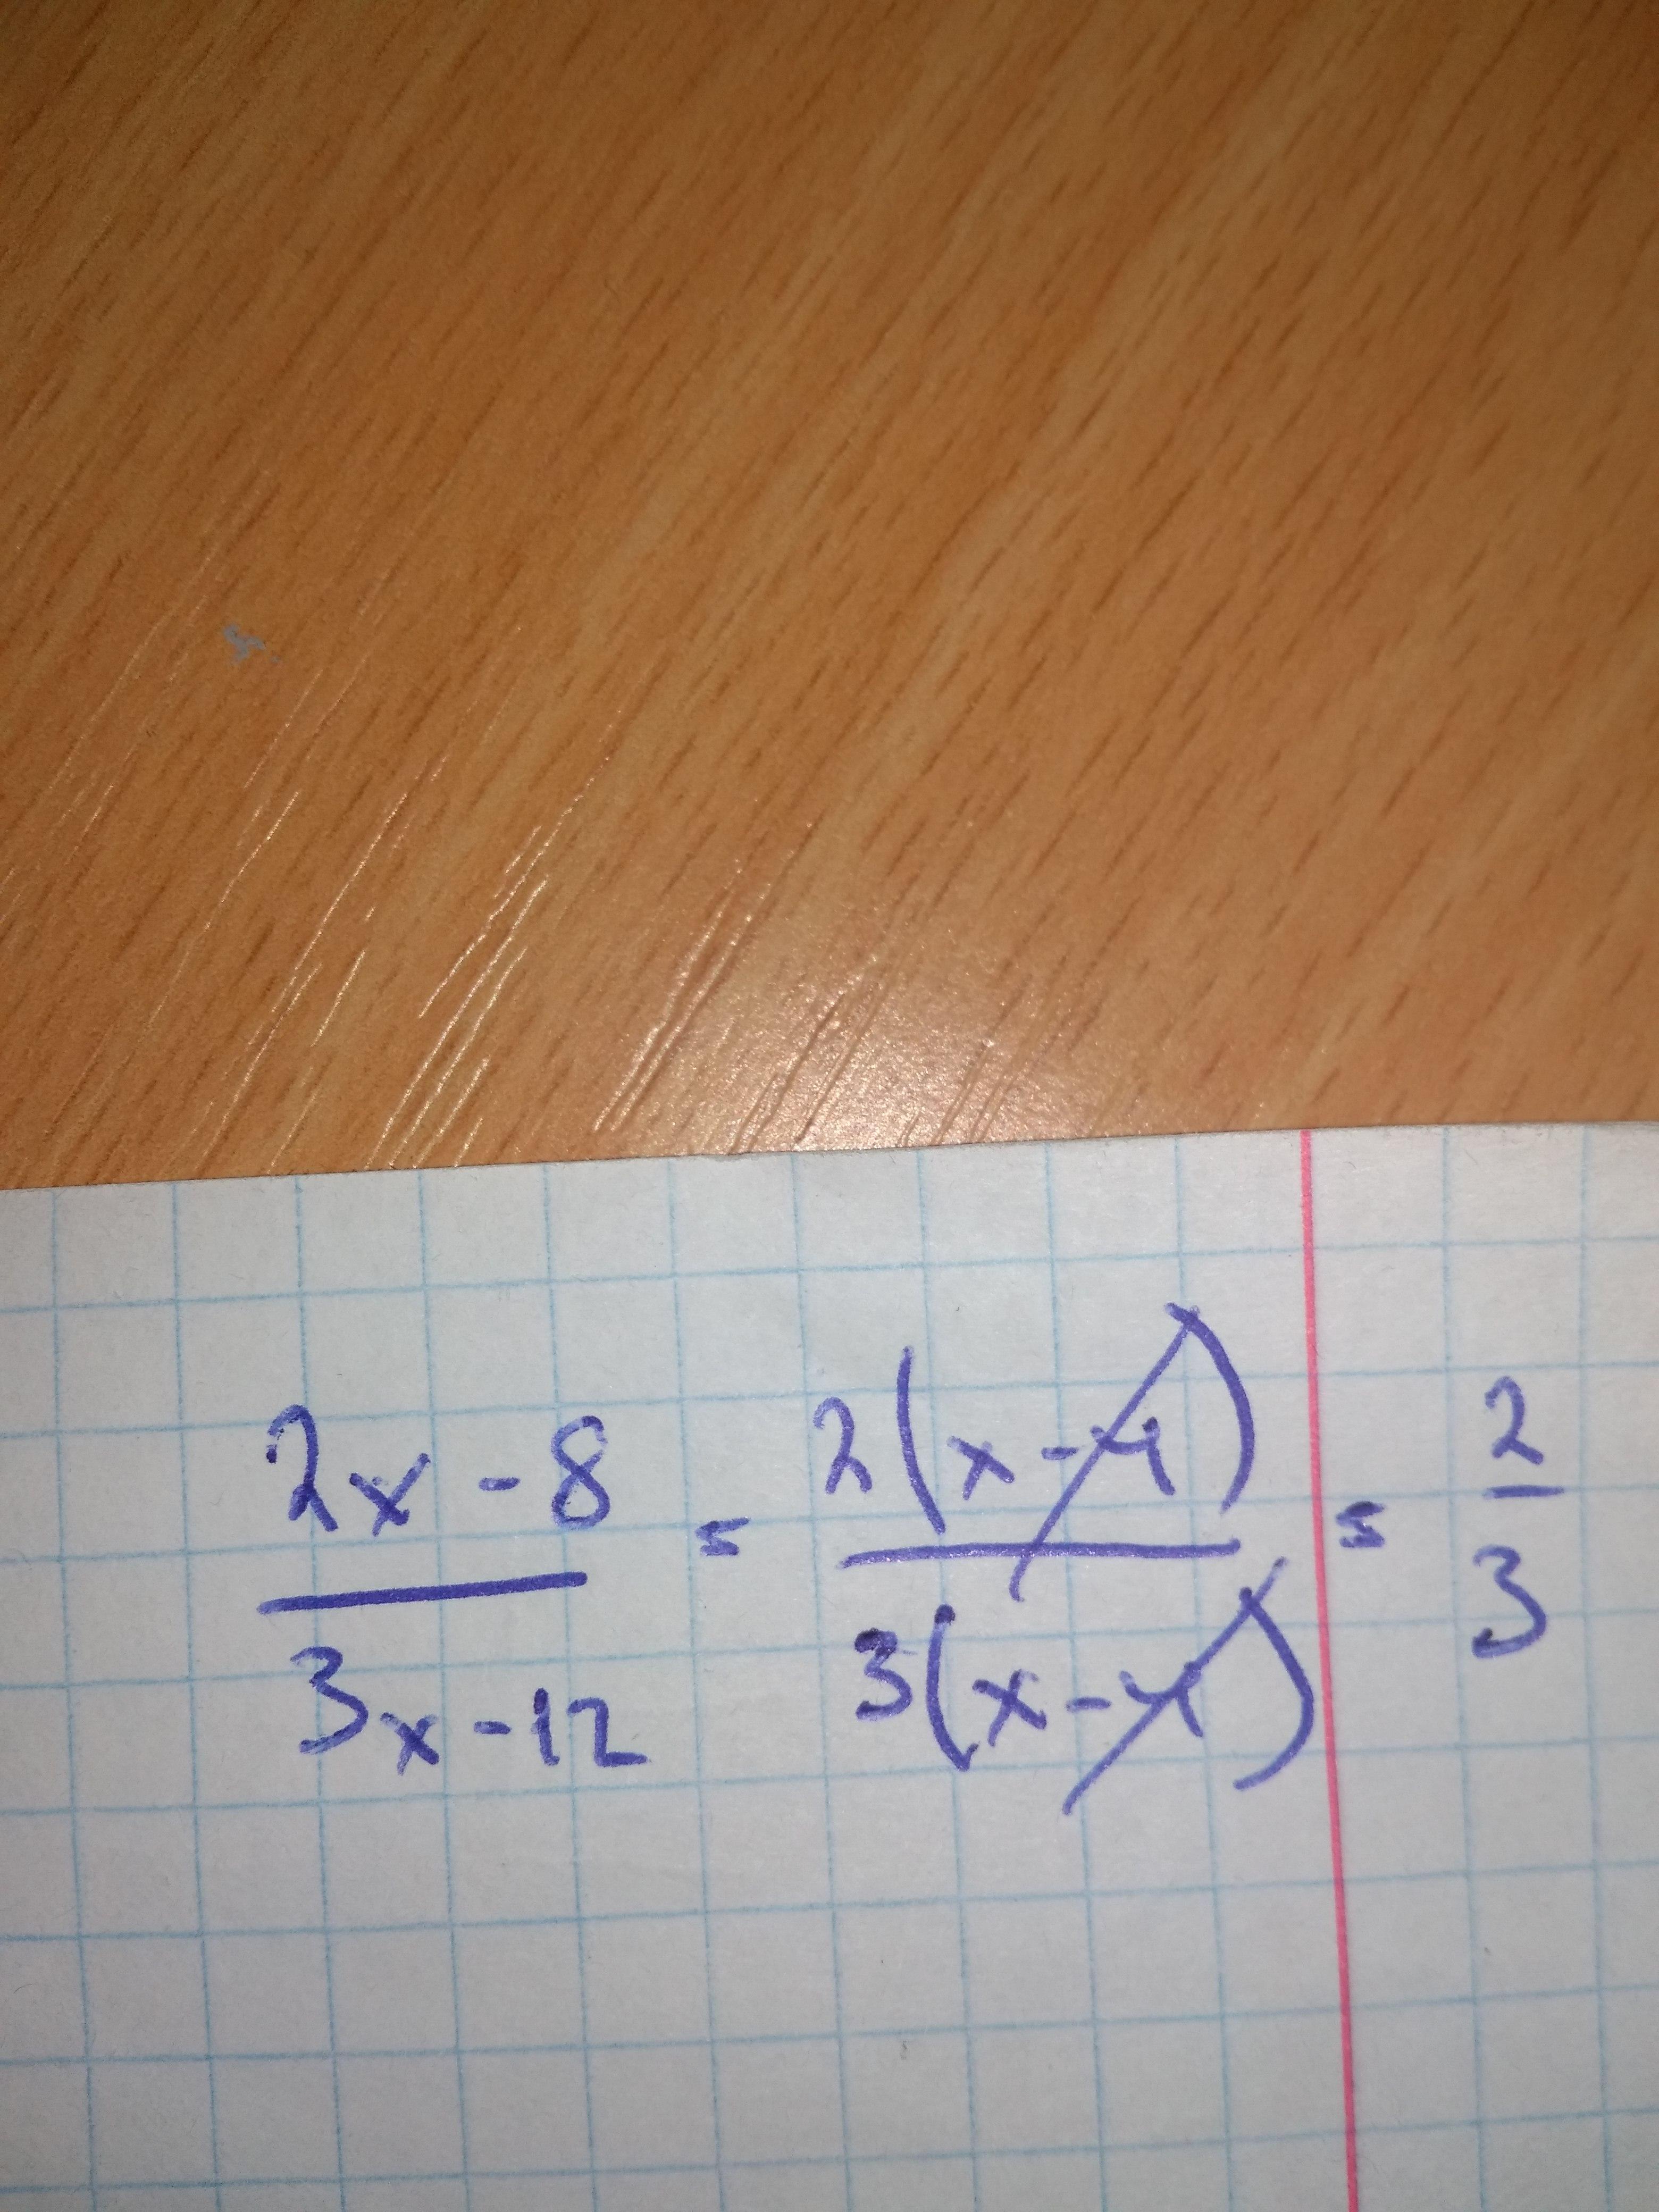 2x - 8 / 3x - 12 = 2(x - 4) / 3(x - 4) = 2 / 3